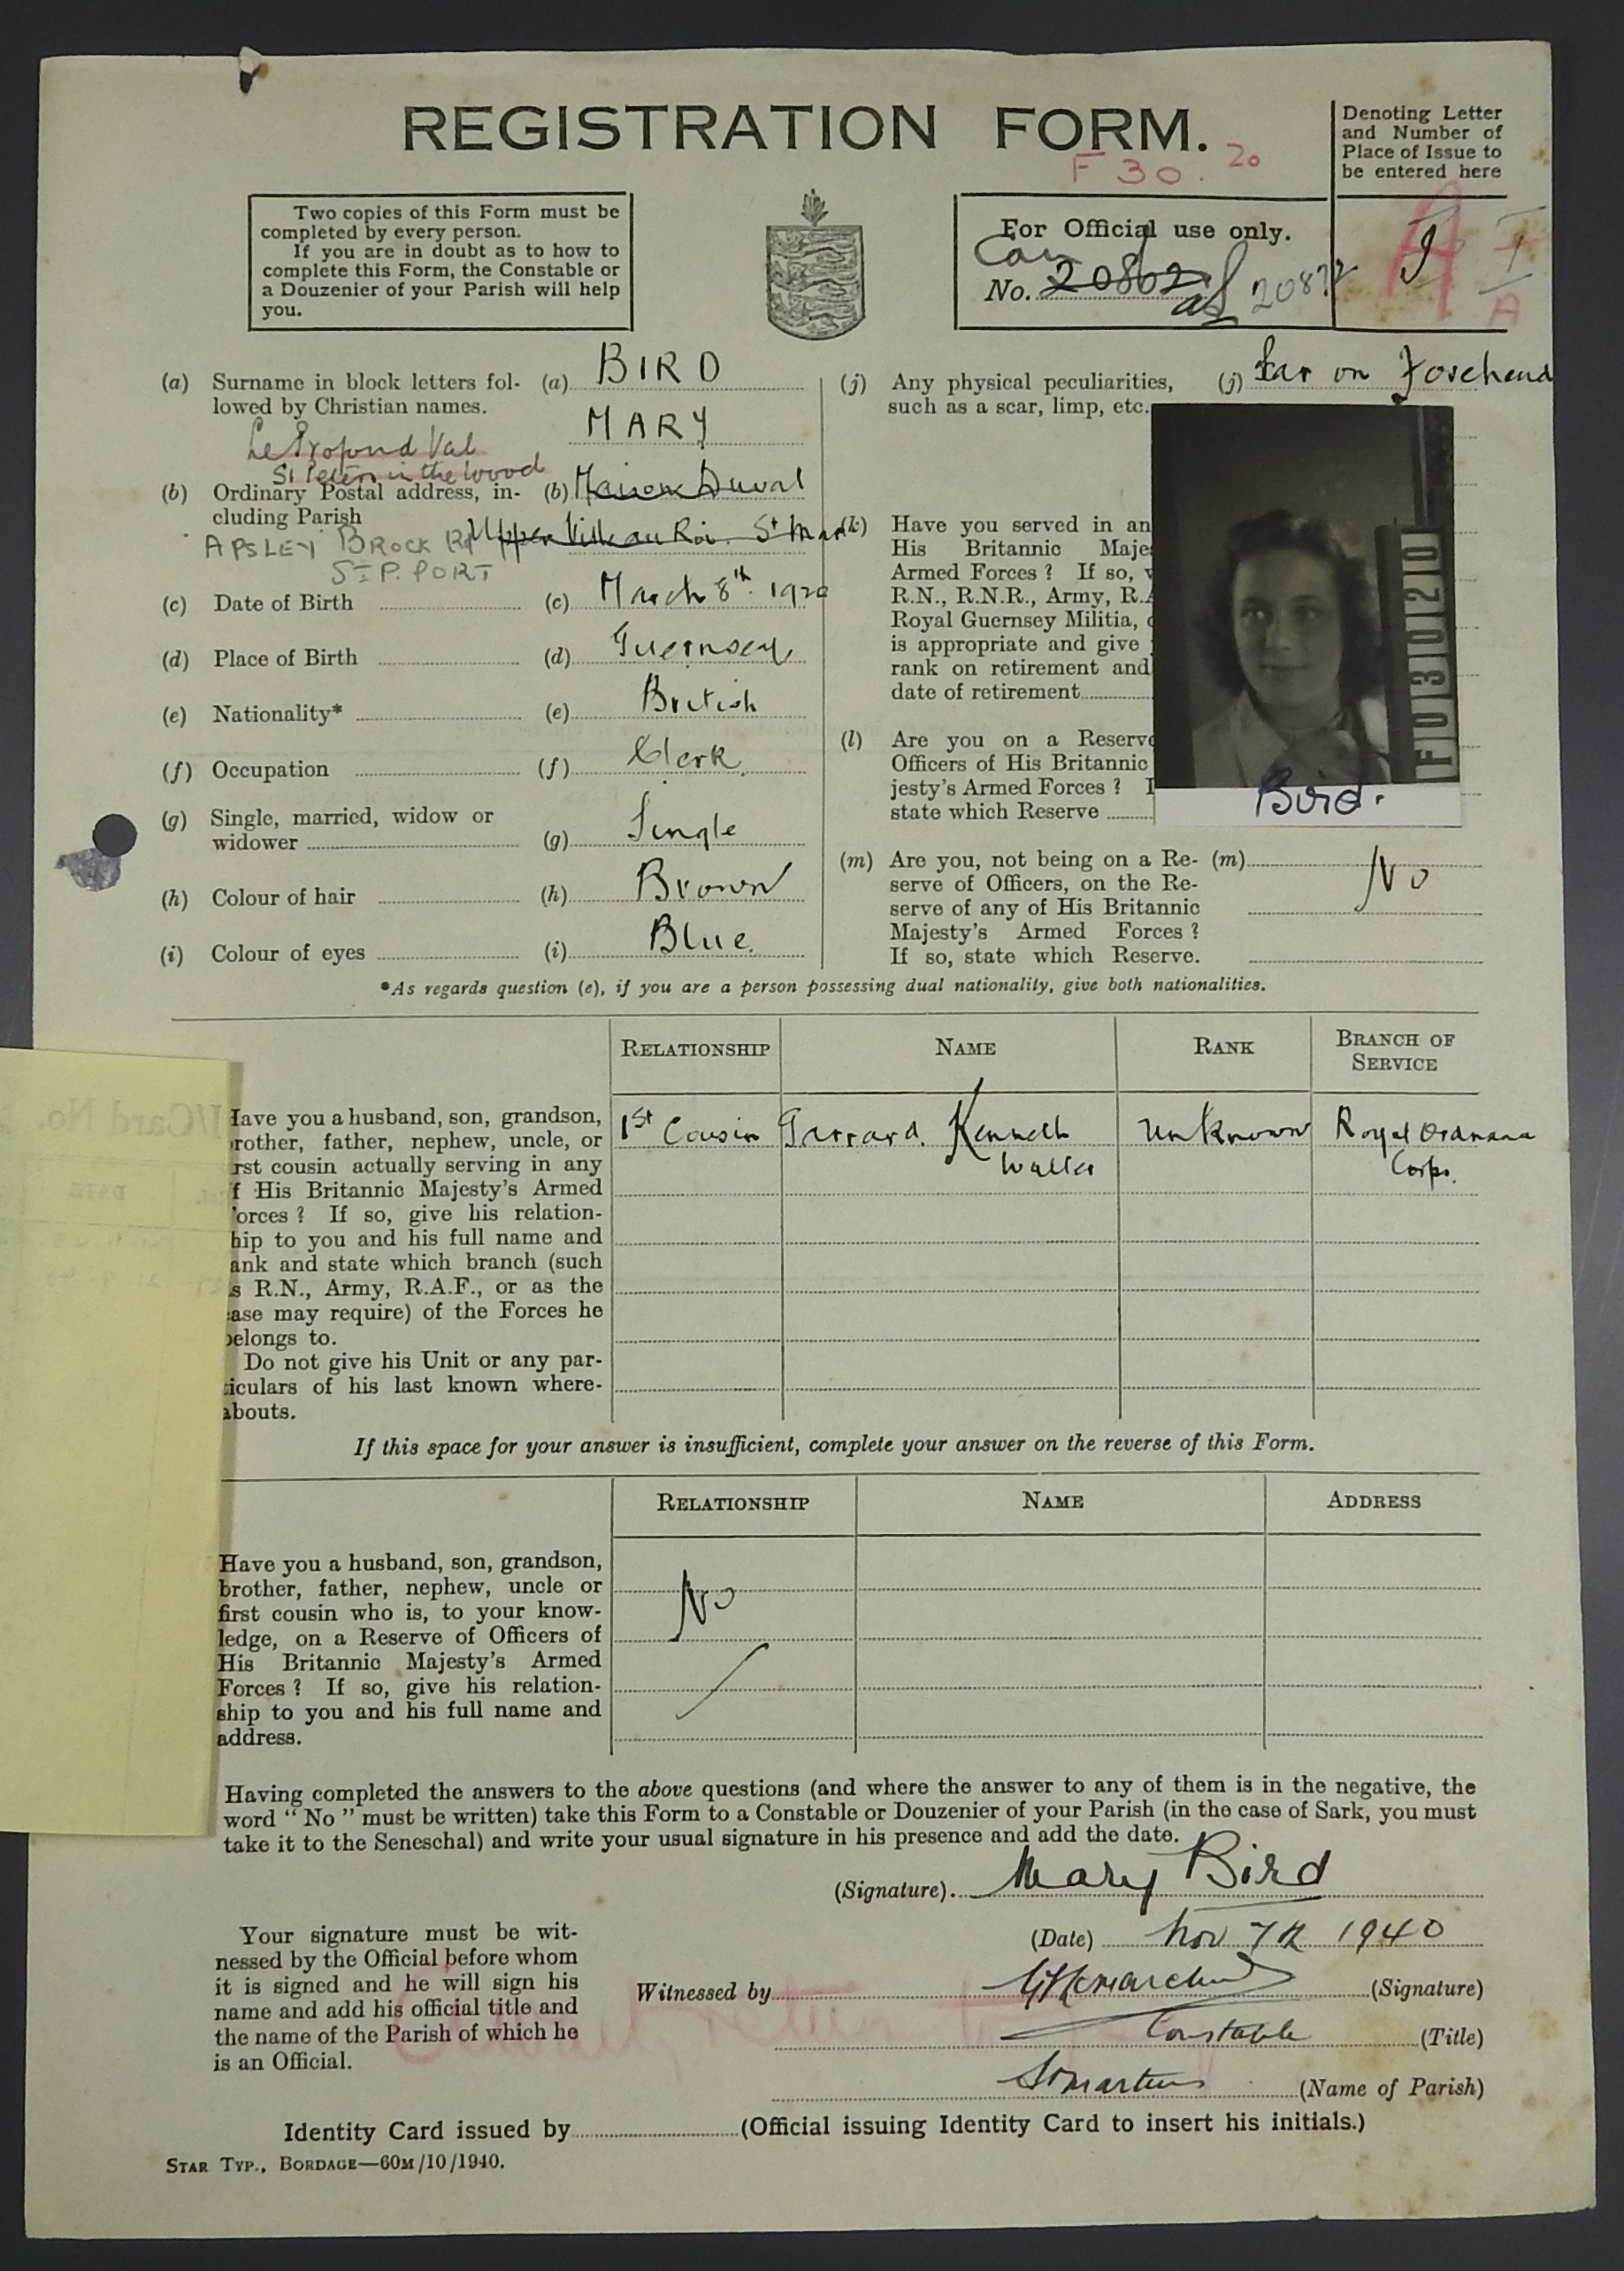 REGISTRATION FORM.
F 30. 20
Denoting Letter
and Number of
Place of Issue to
be entered here
Two copies of this Form must be
completed by every person.
If you are in doubt as to how to
complete this Form, the Constable or
a Douzenier of your Parish will help
you.
For Official use only.
No. 20862
A
A
(a) Surname in block letters fol- (a) BIRD
lowed by Christian names. MARY
Le Profond Val
St Peters in the Wood
(b) Ordinary Postal address, in- (b) Maison Duval
cluding Parish Upper
APSLEY BROCK Rd
ST P. PORT
(c) Date of Birth (c) March 8th 1920
(d) Place of Birth (d) Guernsey
(e) Nationality* (e) British
(f) Occupation (f) Clerk.
(g) Single, married, widow or
widower (g) Single
(h) Colour of hair (h) Brown
(i) Colour of eyes (i) Blue.
(j) Any physical peculiarities, (j) Scar on Forehead
such as a scar, limp, etc.
(k) Have you served in an
His Britannic Maje
Armed Forces? If so,
R.N., R.N.R., Army, R.A
Royal Guernsey Militia,
is appropriate and give
rank on retirement and
date of retirement
(l) Are you on a Reserve
Officers of His Britannic
jesty's Armed Forces?
state which Reserve
F 0 3 0 2 0
Bird.
(m) Are you, not being on a Re- (m) No
serve of Officers, on the Re-
serve of any of His Britannic
Majesty's Armed Forces?
If so, state which Reserve.
*As regards question (e), if you are a person possessing dual nationality, give both nationalities.
RELATIONSHIP NAME RANK BRANCH OF SERVICE
Have you a husband, son, grandson,
rother, father, nephew, uncle, or
rst cousin actually serving in any
f His Britannic Majesty's Armed
orces? If so, give his relation-
hip to you and his full name and
ank and state which branch (such
s R.N., Army, R.A.F., or as the
ase may require) of the Forces he
belongs to.
Do not give his Unit or any par-
ticulars of his last known where-
abouts.
1st Cousin Garrard. Kenneth unknown Royal Ordnance
Walter Corps.
If this space for your answer is insufficient, complete your answer on the reverse of this Form.
RELATIONSHIP NAME ADDRESS
Have you a husband, son, grandson,
brother, father, nephew, uncle or
first cousin who is, to your know-
ledge, on a Reserve of Officers of
His Britannic Majesty's Armed
Forces? If so, give his relation-
ship to you and his full name and
address.
No
Having completed the answers to the above questions (and where the answer to any of them is in the negative, the
word "No" must be written) take this Form to a Constable or Douzenier of your Parish (in the case of Sark, you must
take it to the Seneschal) and write your usual signature in his presence and add the date.
(Signature) Mary Bird
(Date) Nov 7th 1940
Your signature must be wit-
nessed by the Official before whom
it is signed and he will sign his
name and add his official title and
the name of the Parish of which he
is an Official.
Witnessed by (Signature)
Constable (Title)
St Martins (Name of Parish)
Identity Card issued by (Official issuing Identity Card to insert his initials.)
STAR TYP., BORDAGE—60M/10/1940.